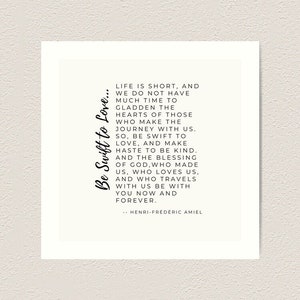 Be Swift to Love...
LIFE IS SHORT, AND
WE DO NOT HAVE
MUCH TIME TO
GLADDEN THE
HEARTS OF THOSE
WHO MAKE THE
JOURNEY WITH US.
SO, BE SWIFT TO
LOVE, AND MAKE
HASTE TO BE KIND.
AND THE BLESSING
OF GOD,WHO MADE
US, WHO LOVES US,
AND WHO TRAVELS
WITH US BE WITH
YOU NOW AND
FOREVER.
-- HENRI-FREDERIC AMIEL